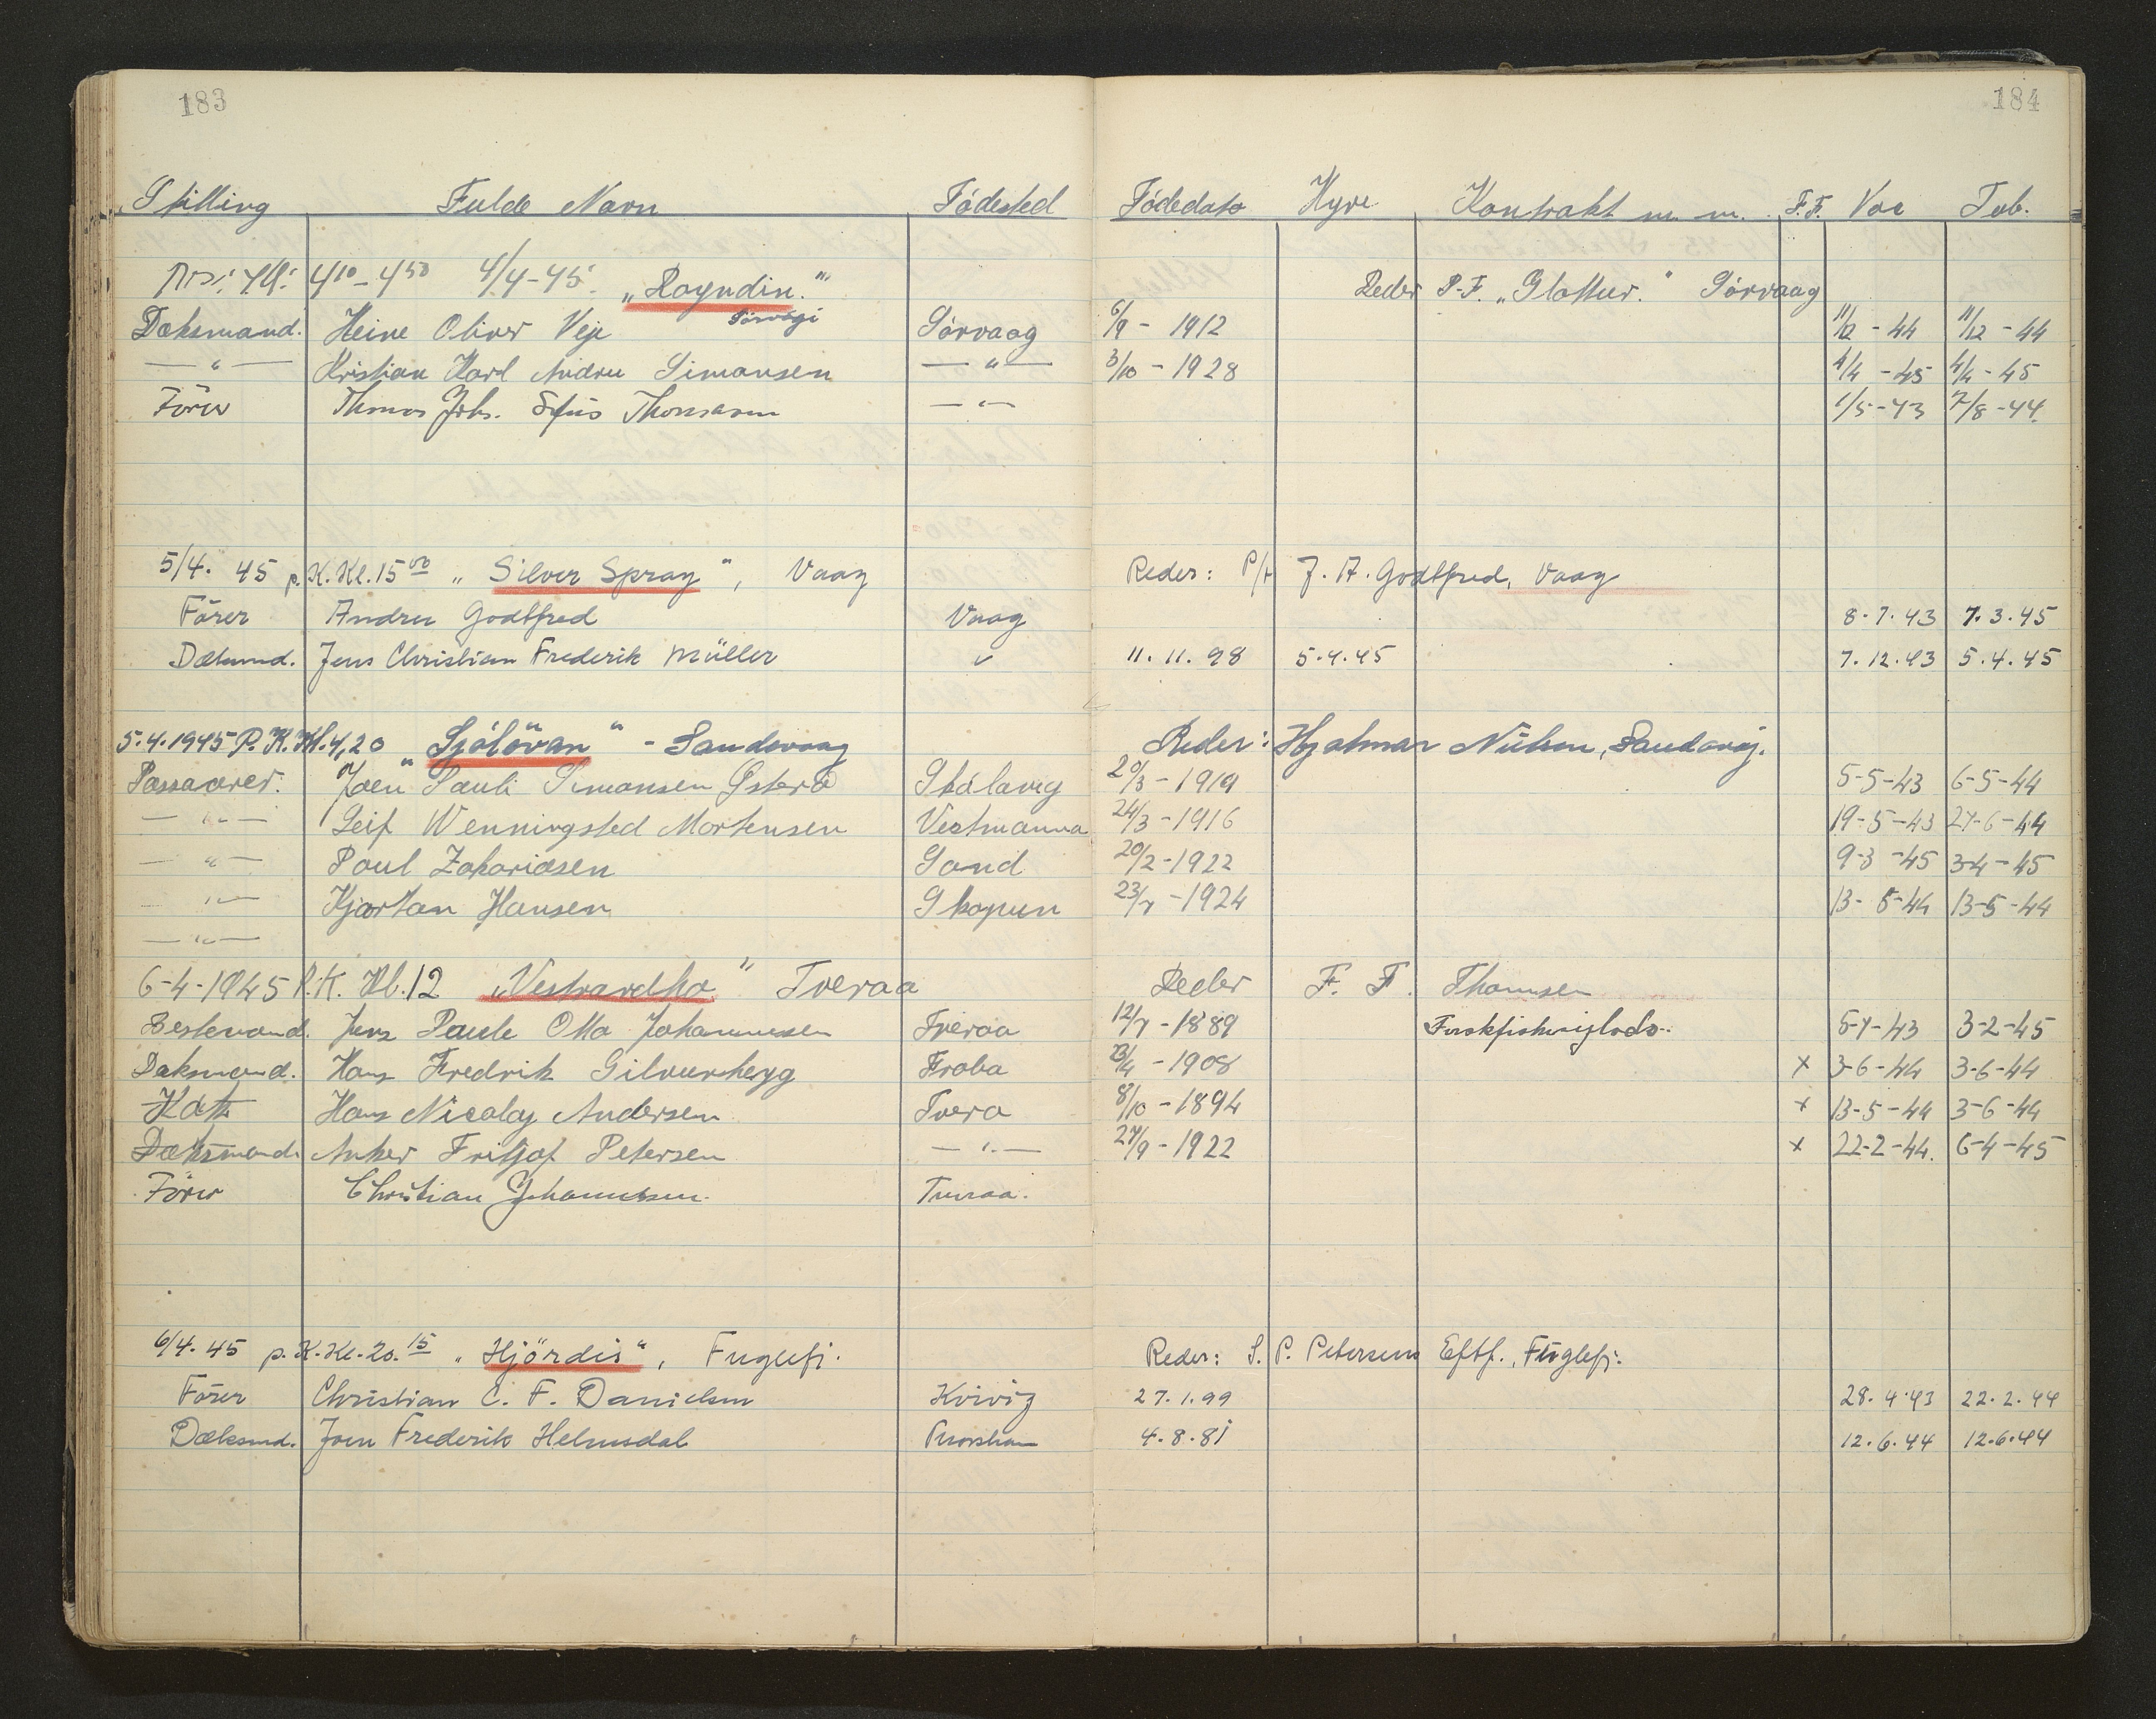 183
184
Stilling Fulde Navn Fødested Fødedato Hyre Kontrakt m. m. F.F. Vac Tub.
4¹⁰-4⁵⁰ 4/4-45. „Royndin." Reder P-F. „Glottur." Sørvaag
Sørvági
Dæksmand. Heine Oliver Veje Sørvaag 6/9 - 1912 11/12 - 44 11/12 - 44
— " — Kristian Karl Andru Simonsen — " — 3/10 - 1928 4/4 - 45 4/4 - 45
Förer Thomas Johs. Sofus Thomsen — " — 1/5-43 7/8-44.
5/4. 45 p.K.Kl.15⁰⁰ „Silver Spray", Vaag Reder: P/F J. A. Godtfred, Vaag
Förer Andrea Godtfred Vaag 8.7.43 7.3.45
Dæksmd. Jens Christian Frederik Müller " 11.11.98 5.4.45 7.12.43 5.4.45
5.4.1945 P.K.Kl.4,20 „Sjólövan" - Sandovaag Reder: Hjalmar Nielsen, Sandavaag.
Passaarer. Joen Pauli Simonsen Østerø Skálavig 20/3 - 1919 5-5-43 6-5-44
— " — Leif Wenningsted Mortensen Vestmanna 24/3 - 1916 19-5-43 27-6-44
— " — Poul Zakariasen Sand 20/2 - 1922 9-3-45 3-4-45
— " — Kjartan Hansen Skopun 23/7 - 1924 13-5-44 13-5-44
— " —
6-4-1945 P.K. Kl.12 „Vestvardho" Tveraa Reder F. F. Thomsen
Bestemand. Jens Paule Otto Johannesen Tveraa 12/7 - 1889 5-7-43 3-2-45
Dæksmand. Hans Fredrik Gilvurshegg Froba 1908 x 3-6-44 3-6-44
Kok Hans Nicolay Andersen Tvera 8/10 - 1894 x 13-5-44 3-6-44
Dæksmand. Anker Fritjof Petersen — " — 27/9 - 1922 x 22-2-44. 6-4-45
Förer Christian Johannesen. Tveraa.
6/4. 45 p.K.Kl.20.¹⁵ „Hjördis", Fuglefj. Reder: S. P. Petersens Eftf., Fuglefj.
Förer Christian C. F. Danielsen Kvivig 27.1.99 28.4.43 22.2.44
Dæksmd. Joen Frederik Helmsdal Thorshavn 4.8.81 12.6.44 12.6.44